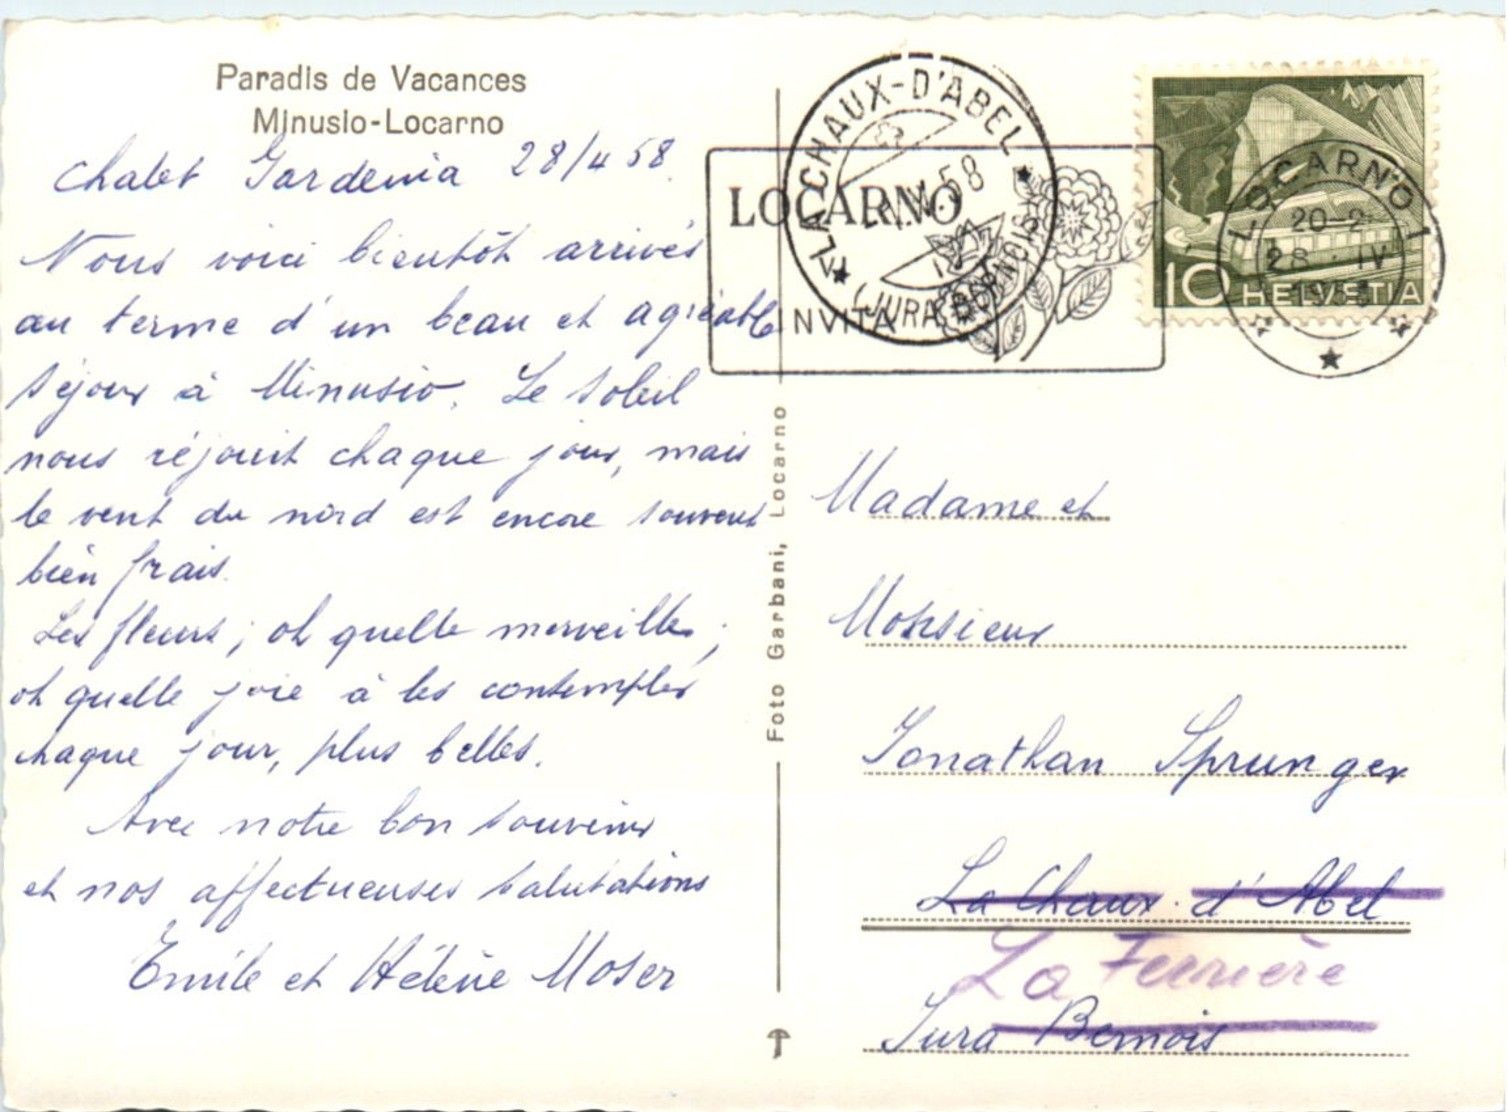 Paradis de Vacances
Minusio-Locarno
Chalet Gardenia 28/4 58.
Nous voici bientôt arrivés
au terme d'un beau et agréable
séjour à Minusio. Le soleil
nous réjouit chaque jour, mais
le vent du nord est encore souvent
bien frais.
Les fleurs; oh quelle merveille;
oh quelle joie à les contempler
chaque jour, plus belles.
Avec notre bon souvenir
et nos affectueuses salutations
Emile et Hélène Moser
Foto Garbani, Locarno
LOCARNO
INVITA
LA CHAUX-D'ABEL
IV.58
(JURA BERNOIS)
LOCARNO 1
20-2
28. IV
1958
10 HELVETIA
Madame et
Monsieur
Jonathan Sprunger
La Chaux-d'Abel
La Ferrière
Jura Bernois